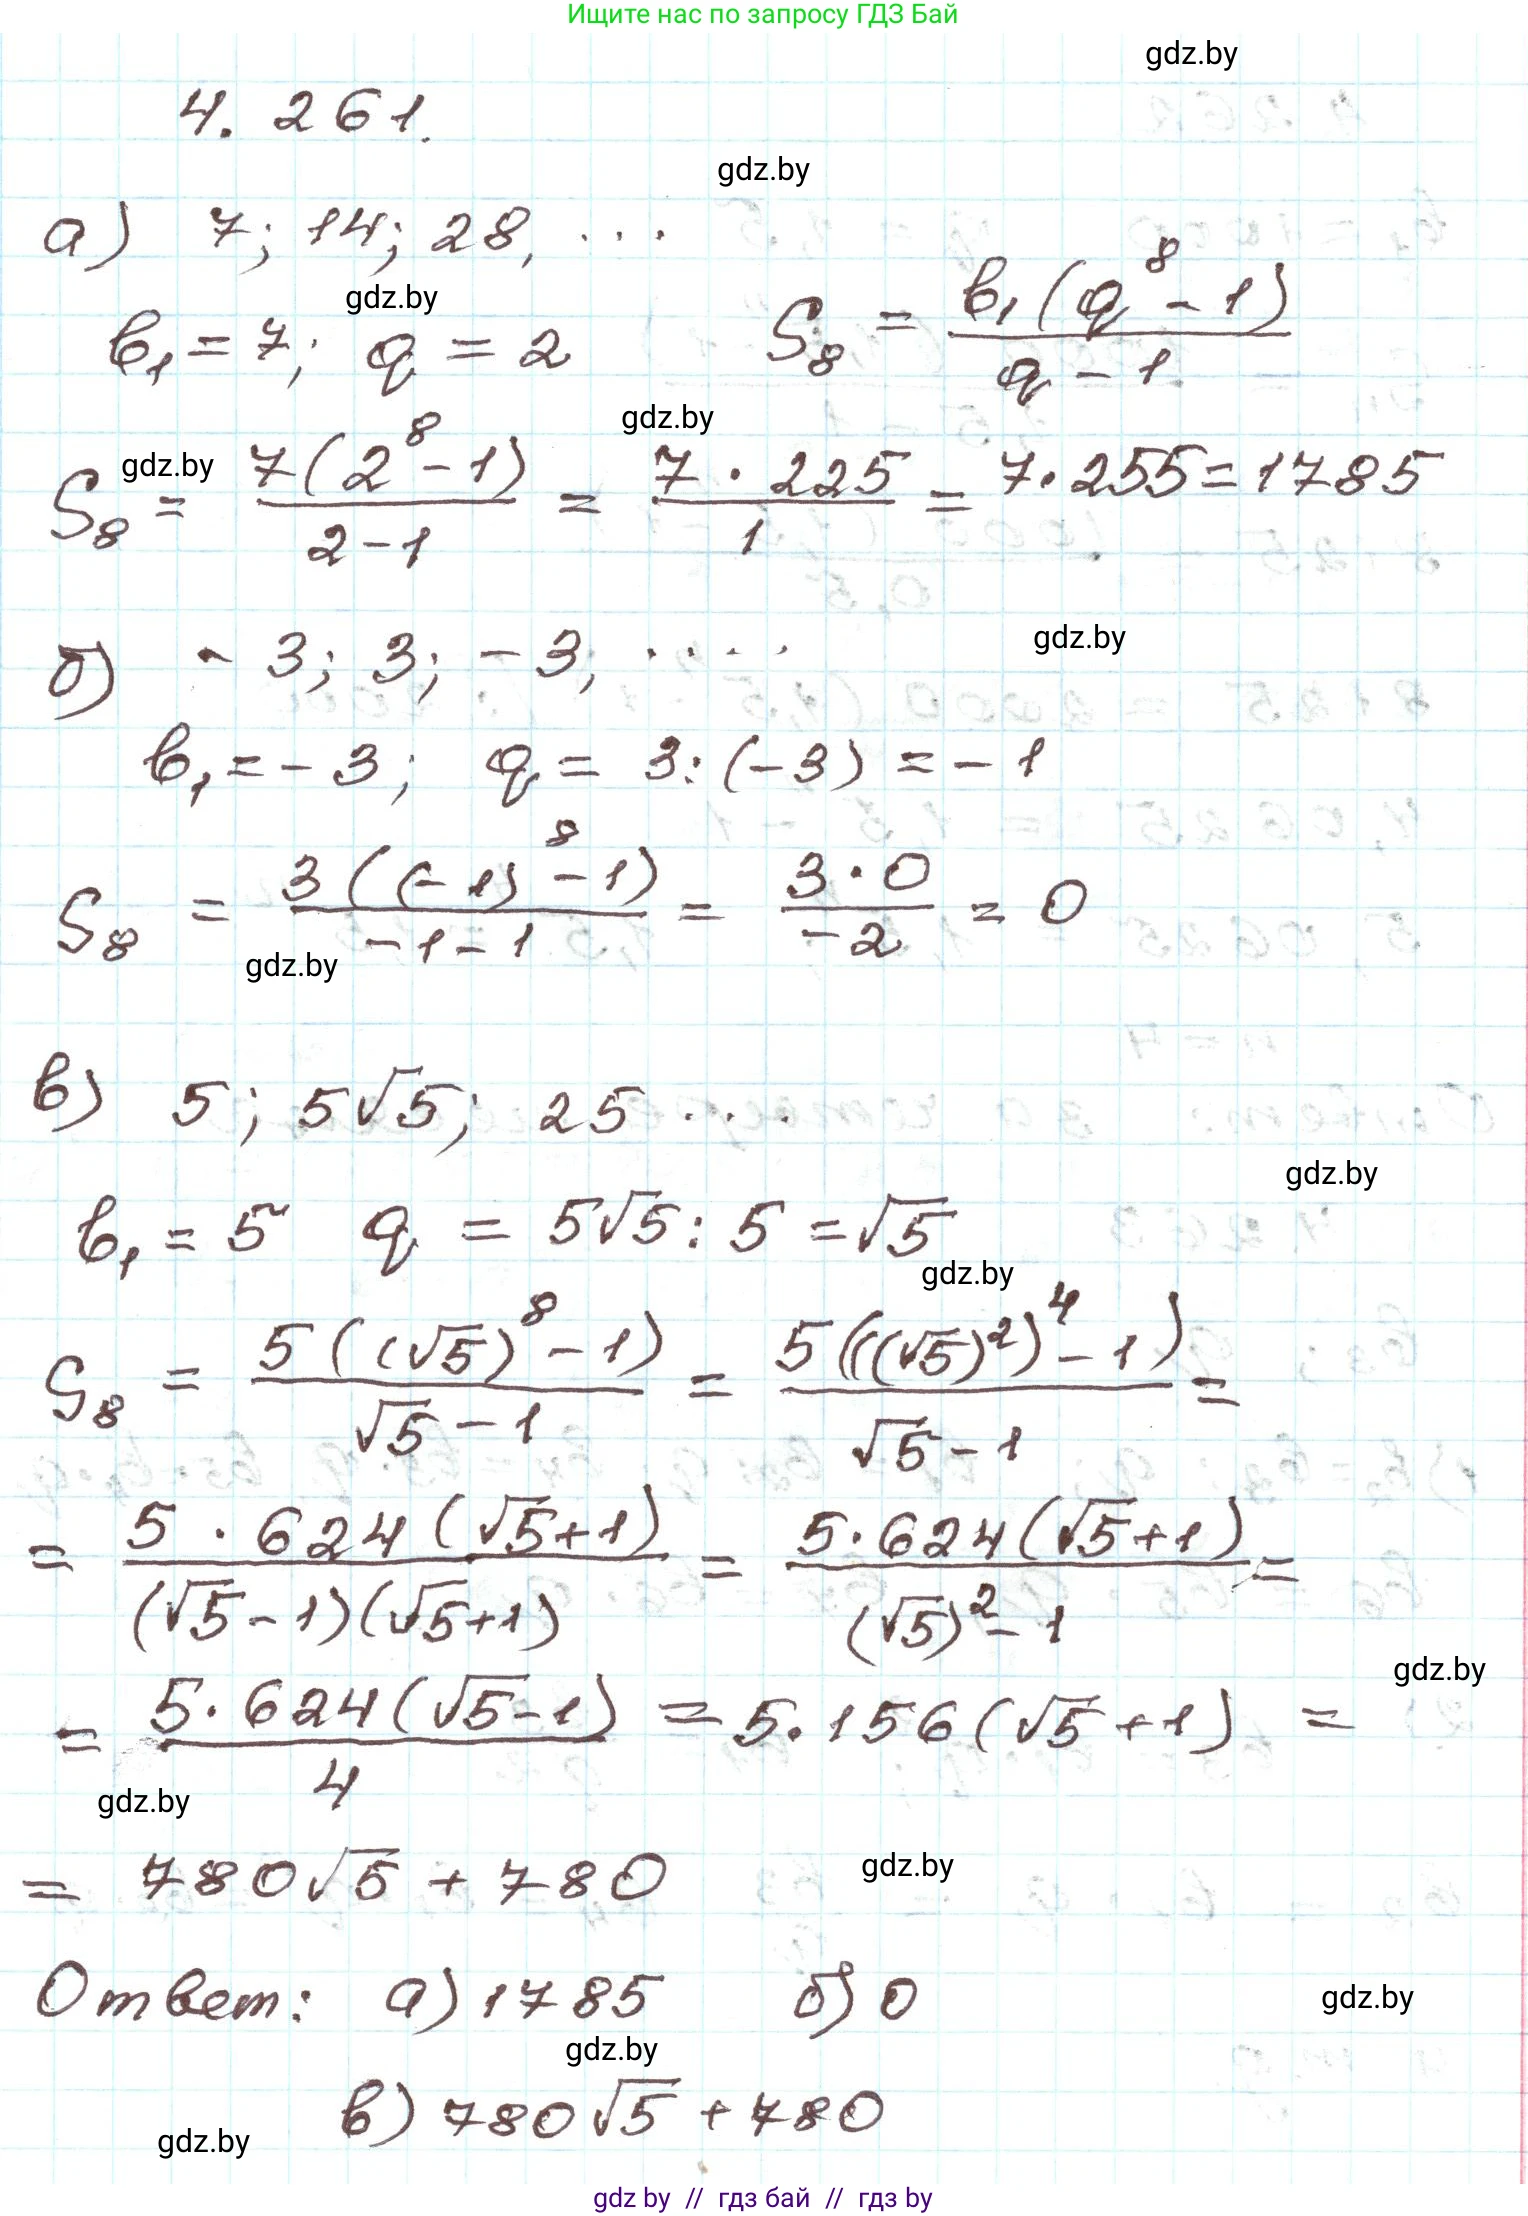 Ищите нас по запросу ГДЗ Бай
gdz.by
4. 261.
gdz.by
а) 7; 14; 28, ...
gdz.by
b₁ = 7; q = 2 S₈ = b₁(q⁸ - 1) / q - 1
gdz.by
gdz.by
S₈ = 7(2⁸ - 1) / 2 - 1 = 7 · 225 / 1 = 7 · 255 = 1785
gdz.by
б) - 3; 3; - 3; ....
b₁ = - 3; q = 3 : (-3) = - 1
S₈ = 3((-1)⁸ - 1) / -1 - 1 = 3 · 0 / -2 = 0
gdz.by
в) 5; 5√5; 25 ...
gdz.by
b₁ = 5 q = 5√5 : 5 = √5
gdz.by
S₈ = 5((√5)⁸ - 1) / √5 - 1 = 5(((√5)²)⁴ - 1) / √5 - 1 =
= 5 · 624(√5+1) / (√5-1)(√5+1) = 5 · 624(√5+1) / (√5)² - 1 =
gdz.by
= 5 · 624(√5-1) / 4 = 5 · 156(√5 + 1) =
gdz.by
gdz.by
= 780√5 + 780
Ответ: а) 1785 б) 0
gdz.by
gdz.by
в) 780√5 + 780
gdz.by
gdz by // гдз бай // гдз by